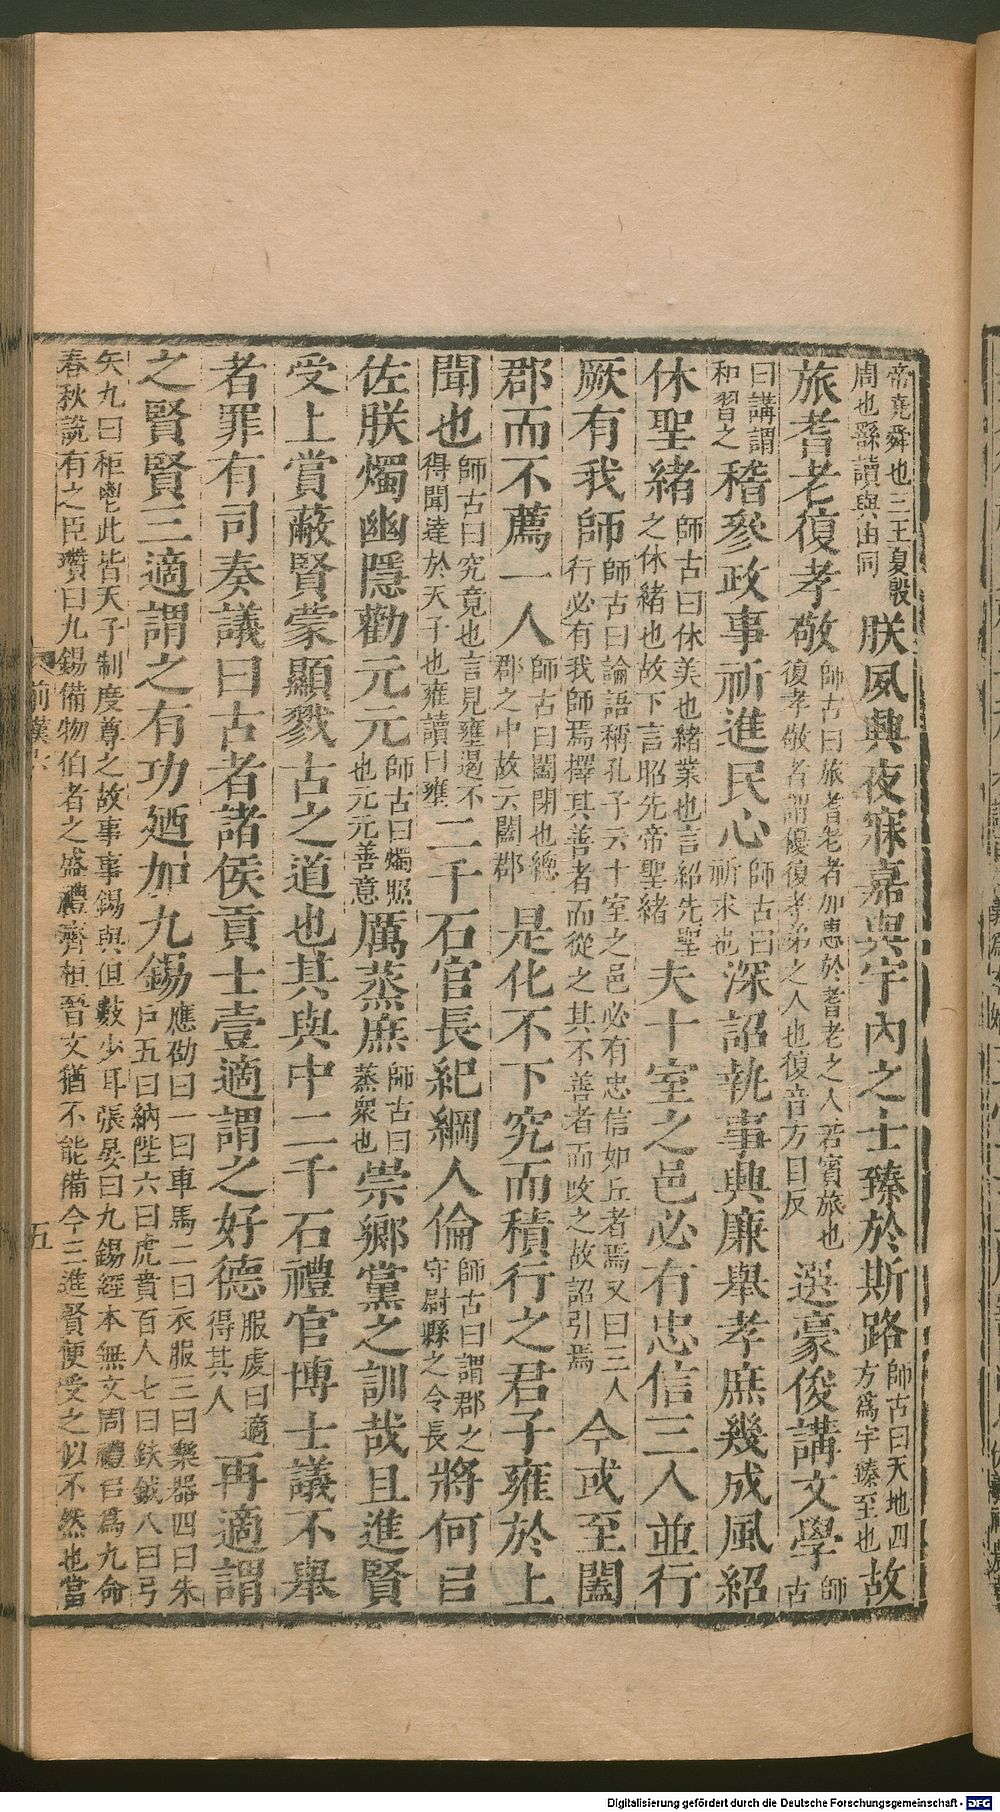 帝堯舜也三王夏殷周也繇讀與由同朕夙興夜寐嘉與宇內之士臻於斯路師古曰天地四方爲宇臻至也故
旅耆老復孝敬師古曰旅耆老者加惠於耆老之人若賓旅也復孝敬者謂優復孝弟之人也復音方目反選豪俊講文學師古
曰講謂和習之稽參政事祈進民心師古曰祈求也深詔執事興廉舉孝庶幾成風紹
休聖緒師古曰休美也緒業也言紹先聖之休緒也故下言昭先帝聖緒夫十室之邑必有忠信三人並行
厥有我師師古曰論語稱孔子云十室之邑必有忠信如丘者焉又曰三人行必有我師焉擇其善者而從之其不善者而改之故詔引焉今或至闔
郡而不薦一人師古曰闔閉也總郡之中故云闔郡是化不下究而積行之君子雍於上
聞也師古曰究竟也言見壅遏不得聞達於天子也雍讀曰壅二千石官長紀綱人倫師古曰謂郡之守尉縣之令長將何㠯
佐朕燭幽隱勸元元師古曰燭照也元元善意厲蒸庶師古曰蒸衆也崇鄉黨之訓哉且進賢
受上賞蔽賢蒙顯戮古之道也其與中二千石禮官博士議不舉
者罪有司奏議曰古者諸侯貢士壹適謂之好德服虔曰適得其人再適謂
之賢賢三適謂之有功廼加九錫應劭曰一曰車馬二曰衣服三曰樂器四曰朱戶五曰納陛六曰虎賁百人七曰鈇鉞八曰弓
矢九曰秬鬯此皆天子制度尊之故事事錫與但數少耳張晏曰九錫經本無文周禮㠯爲九命春秋說有之臣瓚曰九錫備物伯者之盛禮齊桓晉文猶不能備今三進賢便受之似不然也當
前漢六
五
Digitalisierung gefördert durch die Deutsche Forschungsgemeinschaft - DFG